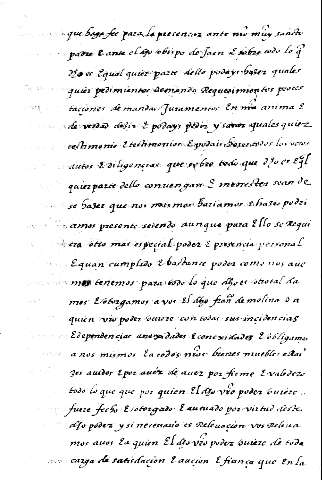 que haga fee para la presentar ante nro muy sancto
padre E ante el dho obispo de Jaen E sobre todo lo q
dho es E qual quier parte dello podays hazer quales
quier pedimientos demandas Requerimientos protes
taciones demandas Juramentos En mi anima E
de verdad dezir E podays pedir y sacar quales quier
testimonio E testimonios E podais hazer todos los otros
autos E diligencias que sobre todo que dho es E ql
quier parte dello convengan E menester sean de
se hazer que nos mesmos hariamos E hazer podri
amos presente seiendo aunque para Ello se Requi
era otro mas especial poder E presencia personal
E quan cumplido E bastante poder como nos ave
mos tenemos para todo lo que dho es otro tal da
mos E otorgamos a vos El dho fran de molina o a
quien vro poder huviere con todas sus incidencias
E dependencias anexidades E conexidades E obligamo
a nos mismos E a todos nros bienes muebles e Rai
zes avidos E por aver de aver por firme E valedero
todo lo que que por quien El dho vro poder huviere
fuere fecho E otorgado E autuado por virtud deste
dho poder y si necesario es Relevacion vos Releva
mos a vos E a quien El dho vro poder huviere de toda
carga de satisdacion E aucion E fiança que En la